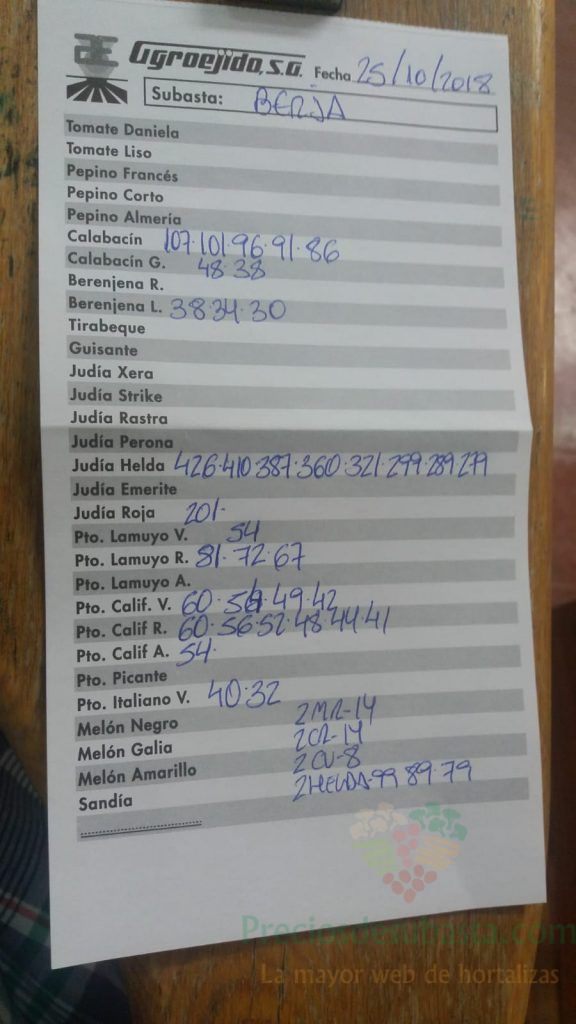 Agroejido, S.A. Fecha 25/10/2018
Subasta: BERJA
Tomate Daniela
Tomate Liso
Pepino Francés
Pepino Corto
Pepino Almería
Calabacín 107·101·96·91·86
Calabacín G. 48·38
Berenjena R.
Berenjena L. 38·34·30
Tirabeque
Guisante
Judía Xera
Judía Strike
Judía Rastra
Judía Perona
Judía Helda 426·410·387·360·321·299·289·279
Judía Emerite
Judía Roja 201·
Pto. Lamuyo V. 54
Pto. Lamuyo R. 81·72·67
Pto. Lamuyo A.
Pto. Calif. V. 60·54·49·42
Pto. Calif R. 60·56·52·48·44·41
Pto. Calif A. 54·
Pto. Picante
Pto. Italiano V. 40·32
Melón Negro 2MR-14
Melón Galia 2CR-14
Melón Amarillo 2CV-8
Sandía 2HELDA-99 89·79
Preciosdesubasta.com
La mayor web de hortalizas